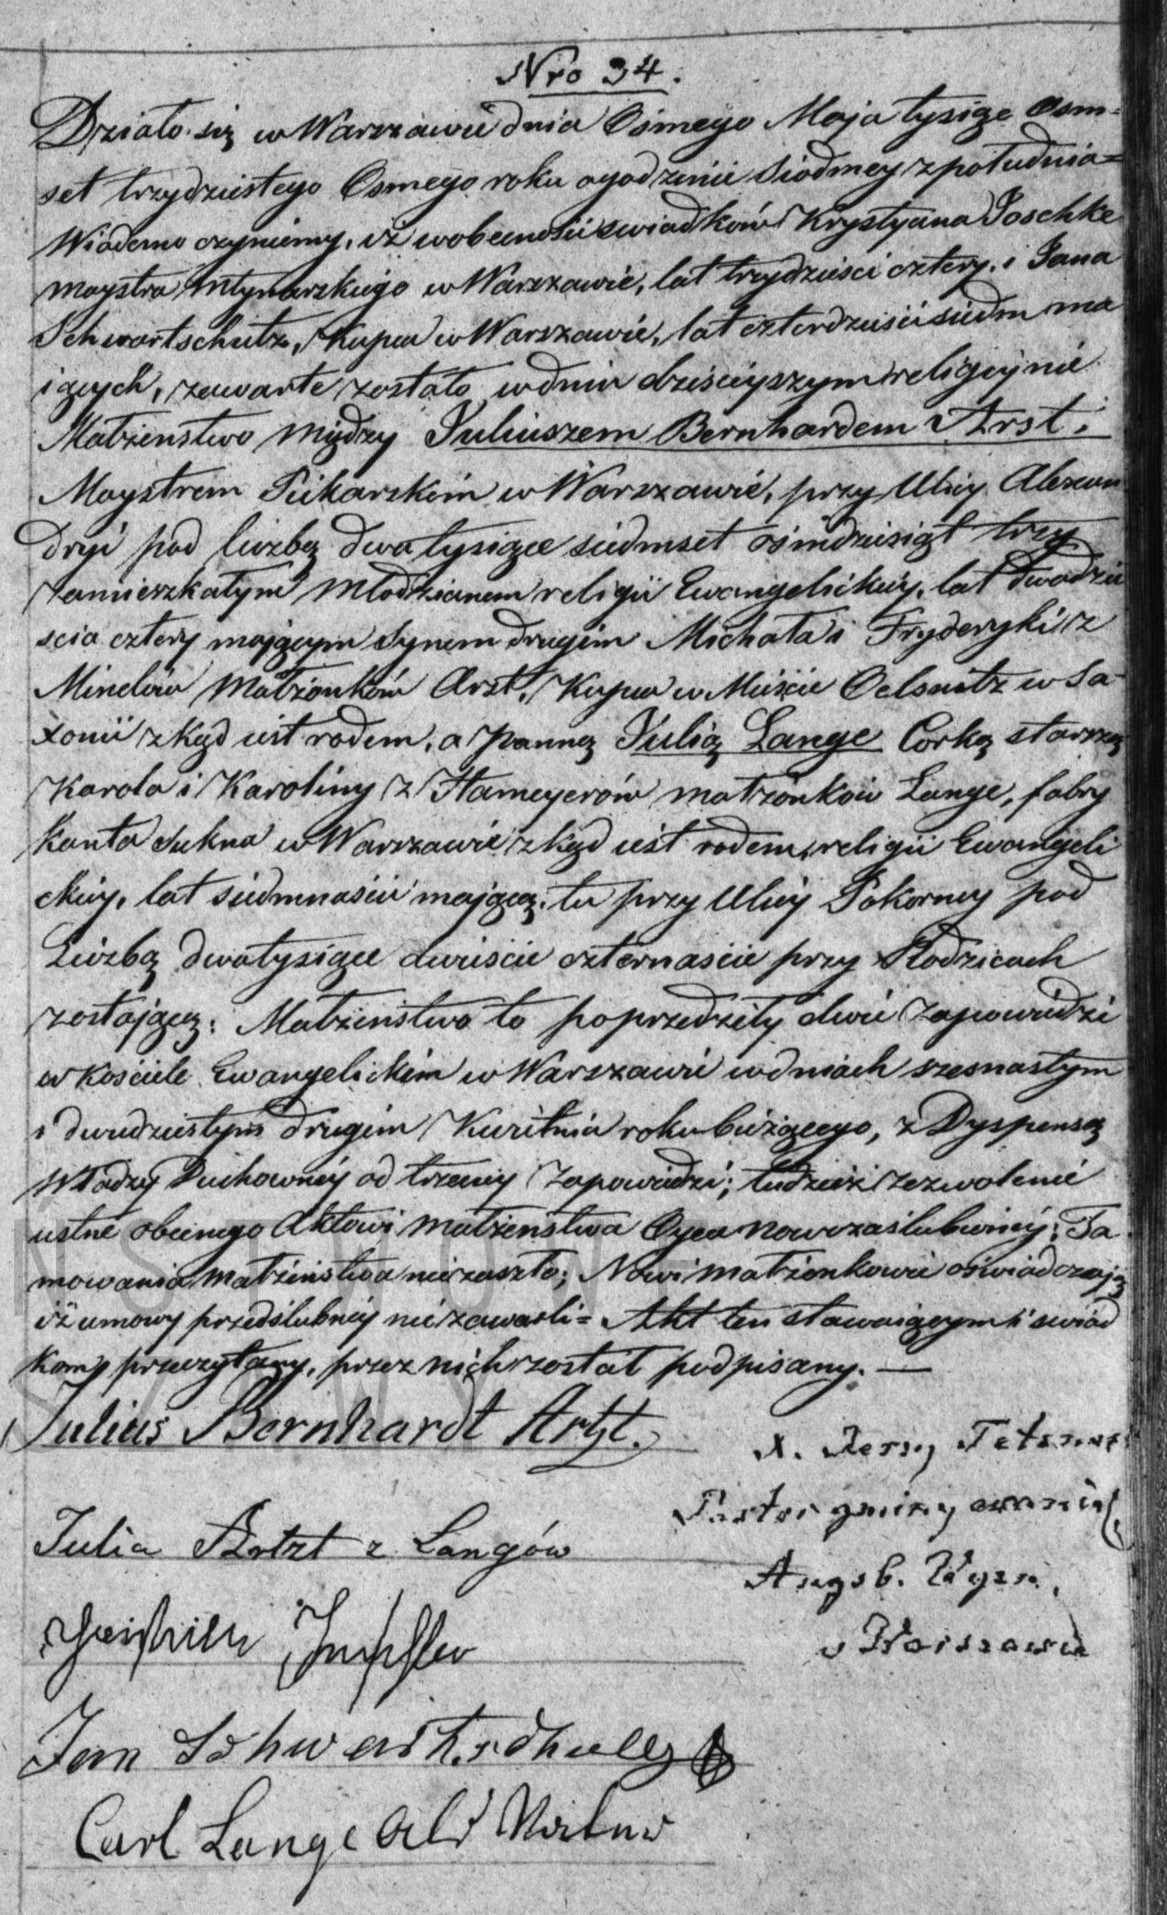 Nro 34.
Działo się w Warszawie dnia Osmego Maja tysiąc Osm=
set trzydziestego Osmego roku ogodzinie siodmey zpołudnia=
Wiadomo czyniemy, iż wobecności swiadków Krystyana Joschke
maystra Młynarskiego w Warszawie, lat trzydzieści cztery, i Jana
Schwartschultz, Kupca w Warszawie, lat czterdzieści siedm ma
iących, zawarte zostało wdniu dzisieyszym religijnie
Małżeństwo między Juliuszem Bernhardem Arzt,
Maystrem Piekarskim w Warszawie, przy Ulicy Alexan
dryi pod liczbą dwa tysiące siedmset ośmdziesiąt trzy
zamieszkałym Młodzianem religii Ewangelickiey, lat dwadzie
scia cztery mającym synem drugim Michała i Fryderyki z
Minelów Małżonków Arzt, Kupca w Mieście Oelsnitz w Sa
xonii zkąd iest rodem, a Panną Julią Lange Corką starszą
Karola i Karoliny z Hameyerów małżonków Lange, fabry
kanta Sukna w Warszawie zkąd iest rodem, religii Ewangeli
ckiey, lat siedmnaście mającą, tu przy Ulicy Pokorney pod
Liczbą dwatysiące dwieście czternaście przy Rodzicach
zostającą: Małżeństwo to poprzedziły dwie Zapowiedzi
w Kościele Ewangelickim w Warszawie wdniach szesnastym
i dwudziestym drugim Kwietnia roku bieżącego, z Dyspensą
Władzy Duchowney od trzeciey Zapowiedzi; tudzież zezwolenie
ustne obecnego Aktowi małżeństwa Oyca Nowozaślubioney: Ta
mowania małżeństwa niezaszło; Nowi małżonkowie oświadczają
iż umowy przedślubney niezawarli= Akt ten stawaiącym i świad
kom przeczytany, przez nich został podpisany. —
Julius Bernhardt Artzt.
X. Jerzy Tetzner
Pastor gminy ewaniel.
Julia Artzt z Langów
Augsb. Wyzn.
w Warszawie
Jan Schwartzschultz
Carl Lange als Vater